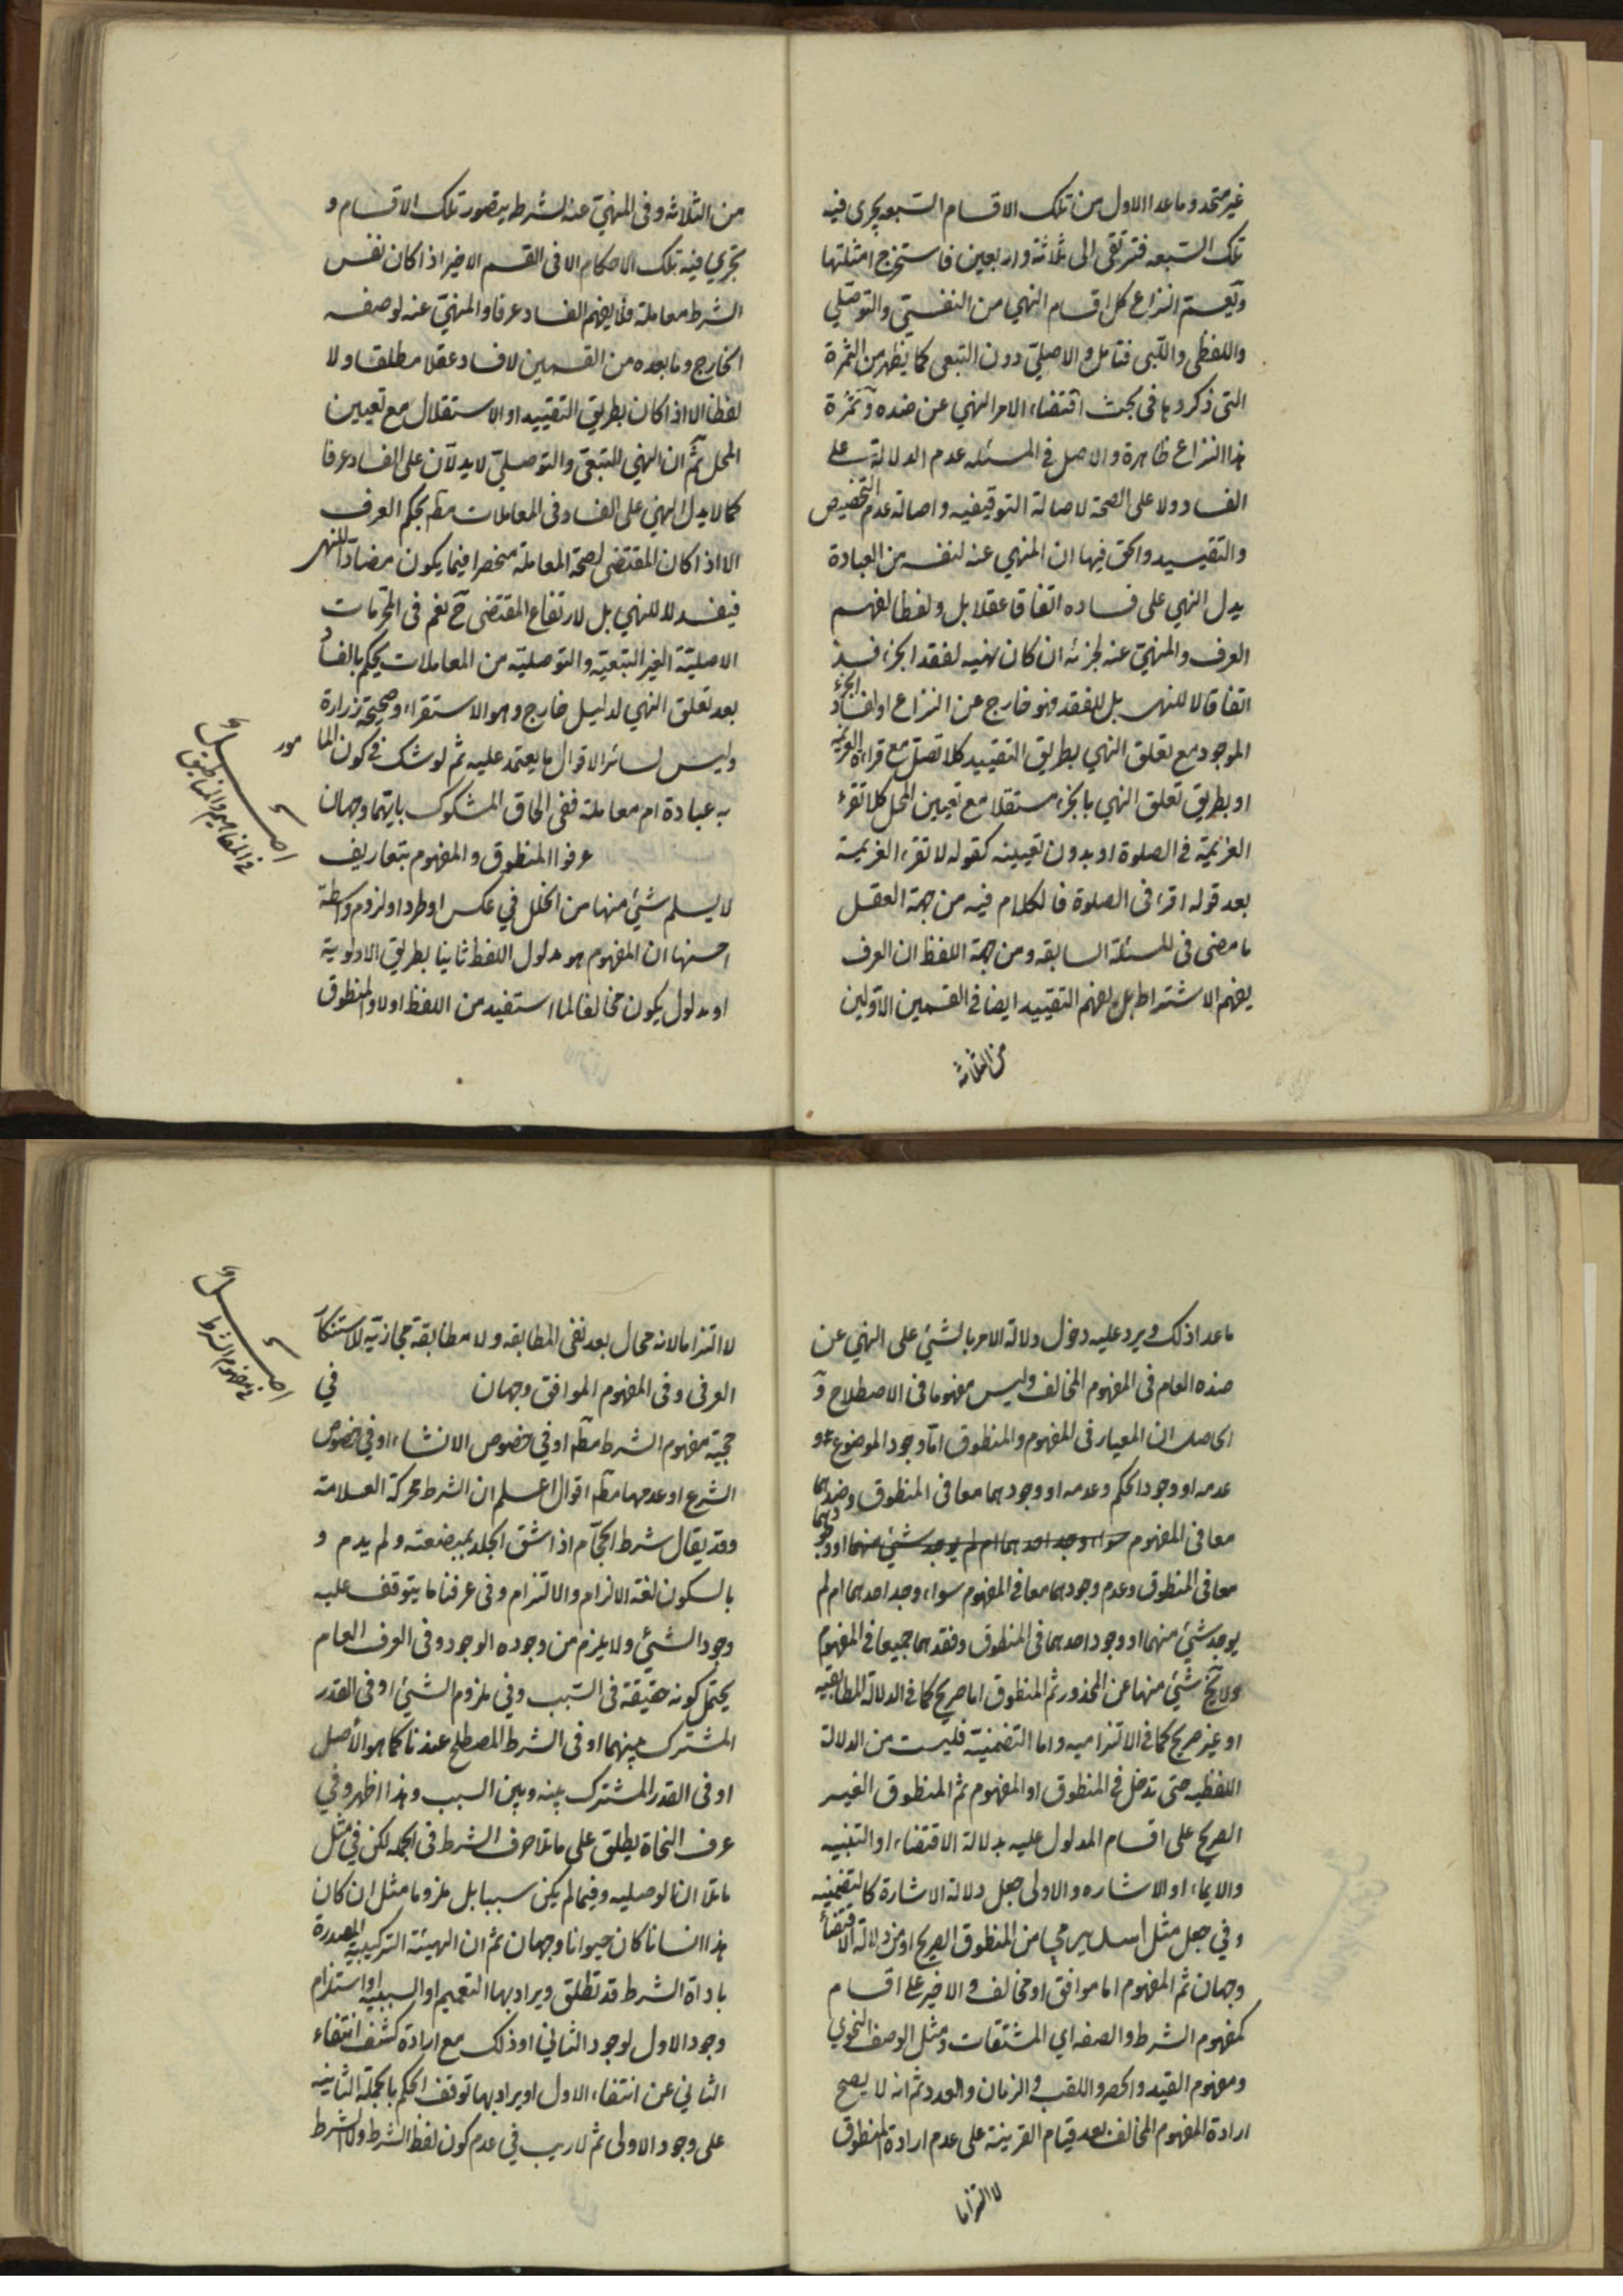 غير متحد وما عدا الاول من تلك الاقسام السبعه يجرى فيه
تلك السبعه فترتقى الى ثلاثة واربعين فاستخرج امثلتها
ويعم النزاع كل اقسام النهي من النفسي والتوصلي
واللفظى واللبى فتامل والاصلي دون التبعى كما يظهر من الثمرة
التى ذكروها فى بحث اقتضاء الامر النهي عن ضده وثمرة
هذا النزاع ظاهرة والاصل في المسئله عدم الدلالة على
الفساد ولا على الصحة لاصالة التوقيفيه واصالة عدم التخصيص
والتقييد والحق فيها ان المنهي عنه لنفسه من العبادة
يدل النهي على فساده اتفاقا عقلا بل ولفظا لفهم
العرف والمنهي عنه لجزئه ان كان نهيه لفقد الجزء فسد
اتفاقا لا للنهى بل للفقد فهو خارج عن النزاع او لفساد الجزء
الموجود مع تعلق النهي بطريق التقييد كلا تصل مع قراءة العزيمه
او بطريق تعلق النهي بالجزء مستقلا مع تعيين المحل كلا تقرء
العزيمة في الصلوة او بدون تعيينه كقوله لا تقرء العزيمة
بعد قوله اقرا فى الصلوة فالكلام فيه من جهة العقل
ما مضى فى المسئلة السابقه ومن جهة اللفظ ان العرف
يفهم الاشتراط بل يفهم التقييد ايضا في القسمين الاولين
من الثلاثه
من الثلاثه وفى المنهي عنه لشرطه يتصور تلك الاقسام و
تجري فيه تلك الاحكام الا فى القسم الاخير اذا كان نفس
الشرط معاملة فلا يفهم الفساد عرفا والمنهي عنه لوصفه
الخارج وما بعده من القسمين لا فساد عقلا مطلقا ولا
لفظا الا اذا كان بطريق التقييد او الاستقلال مع تعيين
المحل ثم ان النهي التبعي والتوصلي لا يدلان على الفساد عرفا
كما لا يدل النهي على الفساد فى المعاملات مطم بحكم العرف
الا اذا كان المقتضى لصحة المعاملة منحصرا فيما يكون مضادا للنهى
فيفسد لا للنهي بل لارتفاع المقتضى ح نعم فى المحرمات
الاصلية الغير التبعية والتوصلية من المعاملات يحكم بالفساد
بعد تعلق النهي لدليل خارج وهو الاستقراء وصحيحة زرارة
وليس لسائر الاقوال ما يعتمد عليه ثم لو شك في كون المامور
به عبادة ام معاملة ففى الحاق المشكوك بايتهما وجهان
عرفوا المنطوق والمفهوم بتعاريف
لا يسلم شيئ منها من الخلل في عكس او طرد او لزوم واسطة
احسنها ان المفهوم هو مدلول اللفظ ثانيا بطريق الاولوية
او مدلول يكون مخالفا لما استفيد من اللفظ اولا والمنطوق
اصل في
في المفاهيم والمناطيق
ما عدا ذلك ويرد عليه دخول دلالة الامر بالشيئ على النهي عن
ضده العام فى المفهوم المخالف وليس مفهوما فى الاصطلاح و
الحاصل ان المعيار فى المفهوم والمنطوق اما وجود الموضوع و
عدمه او وجود الحكم وعدمه او وجودهما معا فى المنطوق وضدهما
معا فى المفهوم سواء وجد احدهما ام لم يوجد شيئ منهما او وجودهما
معا فى المنطوق وعدم وجودهما معا في المفهوم سواء وجد احدهما ام لم
يوجد شيئ منهما او وجود احدهما فى المنطوق وفقدهما جميعا في المفهوم
ولا يخ شيئ منها عن المحذور ثم المنطوق اما صريح كما في الدلالة المطابقيه
او غير صريح كما في الالتزاميه واما التضمنية فليست من الدلالة
اللفظيه حتى تدخل في المنطوق او المفهوم ثم المنطوق الغير
الصريح على اقسام المدلول عليه بدلالة الاقتضاء او التنبيه
والايماء او الاشاره والاولى جعل دلالة الاشارة كالتضمنيه
وفي جعل مثل اسد يرمي من المنطوق الصريح او من دلالة الاقتضاء
وجهان ثم المفهوم اما موافق او مخالف والاخير على اقسام
كمفهوم الشرط والصفه اي المشتقات ومثل الوصف النحوي
ومفهوم القيد والحصر واللقب والزمان والعدد ثم انه لا يصح
ارادة المفهوم المخالف بعد قيام القرينة على عدم ارادة المنطوق
لا التزاما
لا التزاما لانه محال بعد نفى المطابقه ولا مطابقة مجازية للاستنكار
العرفى وفى المفهوم الموافق وجهان في
حجية مفهوم الشرط مطم او في خصوص الانشاء او في خصوص
الشرع او عدمها مطم اقوال اعلم ان الشرط محركة العلامة
وقد يقال شرط الحجام اذا شق الجلد بمبضعته ولم يدم و
بالسكون لغة الالزام والالتزام وفى عرفنا ما يتوقف عليه
وجود الشيئ ولا يلزم من وجوده الوجود وفى العرف العام
يحتمل كونه حقيقة فى السبب وفي ملزوم الشيئ او فى القدر
المشترك بينهما او فى الشرط المصطلح عندنا كما هو الاصل
او فى القدر المشترك بينه وبين السبب وهذا اظهر وفي
عرف النحاة يطلق على ما تلا حرف الشرط فى الجمله لكن في مثل
ما تلا ان الوصليه وفيما لم يكن سببا بل ملزوما مثل ان كان
هذا انسانا كان حيوانا وجهان ثم ان الهيئة التركيبية المصدرة
باداة الشرط قد تطلق ويراد بها التعميم او السببيه او استلزام
وجود الاول لوجود الثاني او ذلك مع ارادة كشف انتفاء
الثاني عن انتفاء الاول او يراد بها توقف الحكم بالجملة الثانيه
على وجود الاولى ثم لا ريب في عدم كون لفظ الشرط ولا الشرط
اصل في
في مفهوم الشرط